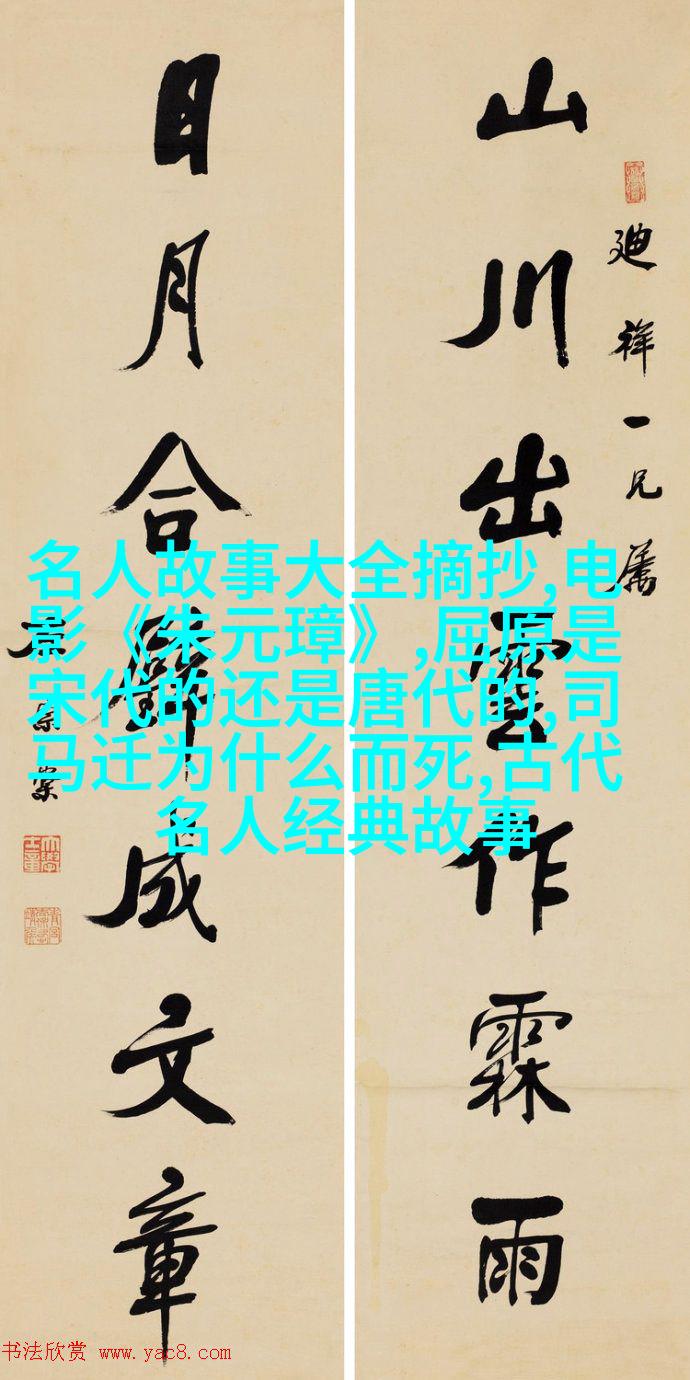 廸祥一兄屬
山川出雲作霖雨
日月合璧成文章
名人故事大全摘抄,电
影《朱元璋》,屈原是
宋代的还是唐代的,司
马迁为什么而死,古代
名人经典故事
书法欣赏 www.yac8.com